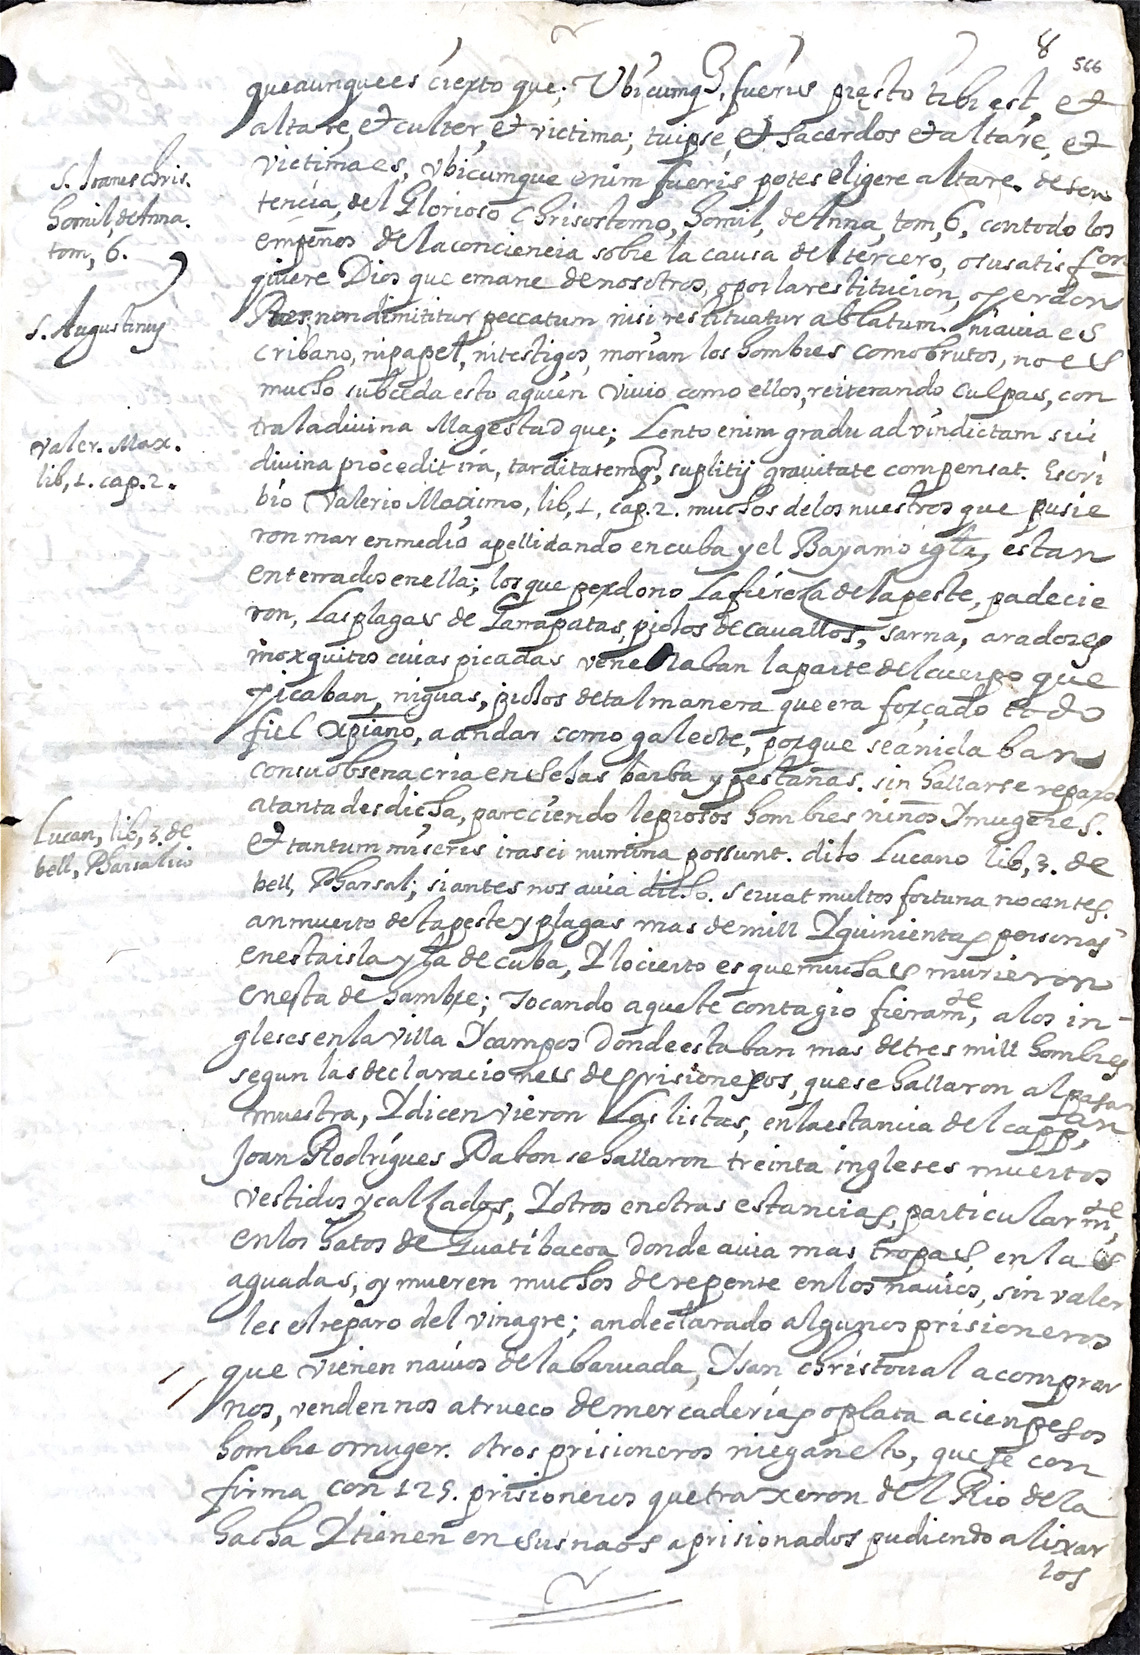 8
566
que aunque es cierto que; Ubicumq3, fueris presto tibi est, et
altare, et culter, et victima; tu ipse, et sacerdos et altare, et
victima es, ubicumque enim fueris potes eligere altare. de sen
tencia, del Glorioso Chrisostomo, homil, de Anna, tom, 6, con todo los
empeños de la conciencia sobre la causa del tercero, o su satisfon
quiere Dios que emane de nosotros, o por la restitucion, o perdon
non dimititur peccatum nisi restituatur ablatum. ni avia es
cribano, ni papel, ni testigos, morian los hombres como brutos, no es
mucho subceda esto a quien vivio como ellos, reiterando culpas, con
tra la divina Magestad que; Lento enim gradu ad vindictam sui
divina procedit ira, tarditatemq3, suplitij gravitate compensat. Escri
bio Valerio Maximo, lib, 1, cap. 2. muchos de los nuestros que pusie
ron mar en medio apellidando en cuba y el Bayamo iglª, estan
enterrados en ella; los que perdono La fiereza de la peste, padecie
ron, Las plagas de Garrapatas, piolos de cavallos, sarna, aradores
moxquitos cuias picadas venenaban la parte del cuerpo que
picaban, niguas, piolos de tal manera que era forçado todo
fiel Xpiano, a andar como galeote, porque se anidaban
con su obsena cria en Sejas barba y pestañas. sin hallarse reparo
a tanta desdicha, pareciendo leprosos hombres niños Y mugeres.
et tantum miseris irasci numina possunt. dijo Lucano lib, 3. de
bell, Pharsal; si antes nos avia dicho. servat multos fortuna nocentes.
an muerto desta peste y plagas mas de mill Y quinientas personas
en esta isla y la de cuba, Y lo cierto es que muchas murieron
en esta de hambre; Tocando aqueste contagio fieramte, a los in-
gleses en la villa Y campos donde estaban mas de tres mill hombres
segun las declaraciones de prisioneros, que se hallaron al pasar
muestra, Y dicen vieron Las listas, en la estancia del cappan,
Joan Rodrígues Pabon se hallaron treinta ingleses muertos
vestidos y calzados, Y otros en otras estancias, particularmte,
en los hatos de Guatibacoa donde avia mas tropas, en las
aguadas, oy mueren muchos de repente en los navios, sin valer
les el reparo del vinagre; an declarado algunos prisioneros
que vienen navios de la barvada, Y san christoval a comprar
nos, venden nos a trueco de mercaderias o plata a cien pesos
hombre o muger. otros prisioneros niegan esto, que se con
firma con 125. prisioneros que traxeron del Rio de la
hacha Y tienen en sus naos aprisionados pudiendo alixar
los
S. Ioanes Chris.
homil, de Anna.
tom, 6.
S. Augustinus
Valer. Max.
lib, 1. cap. 2.
Lucan, lib, 3. de
bell, Pharsalico